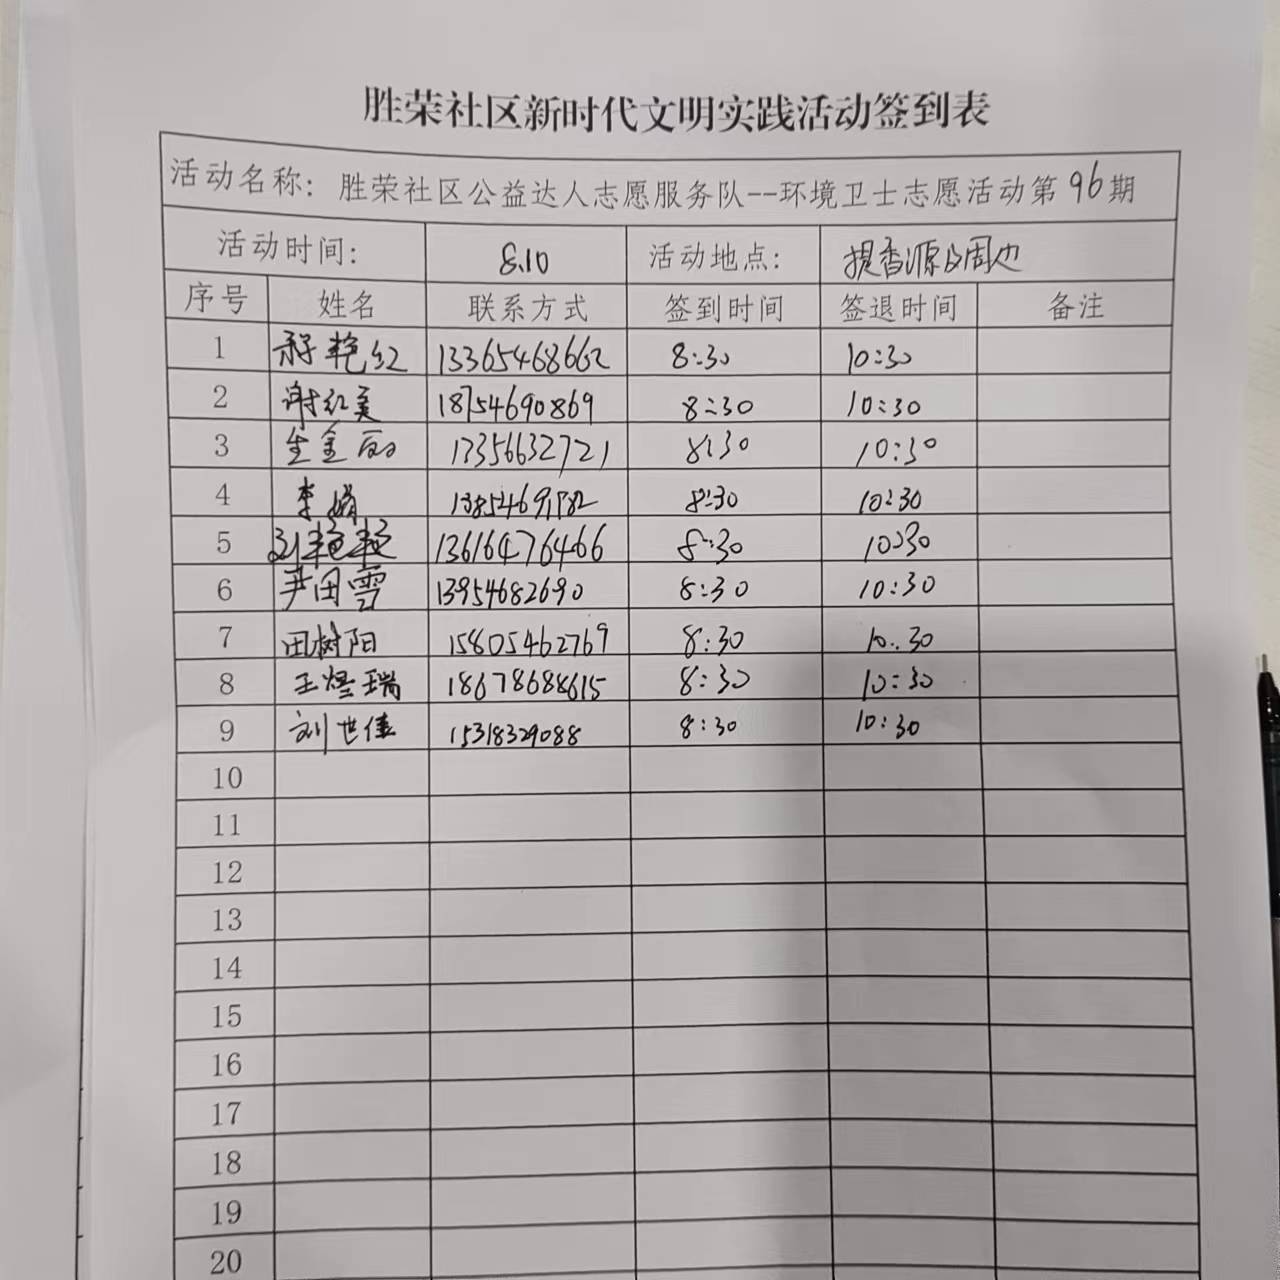 胜荣社区新时代文明实践活动签到表
活动名称：胜荣社区公益达人志愿服务队--环境卫士志愿活动第96期
活动时间： 8.10 活动地点： 提香源及周边
序号 姓名 联系方式 签到时间 签退时间 备注
1 艳红 13365468662 8:30 10:30
2 谢红美 18754690869 8:30 10:30
3 生金丽 17356632721 8:30 10:30
4 李娟 8:30 10:30
5 刘艳艳 13616476466 8:30 10:30
6 尹田雪 13954682690 8:30 10:30
7 田树阳 15805462769 8:30 10:30
8 王煜瑞 18678688615 8:30 10:30
9 刘世佳 15318329088 8:30 10:30
10
11
12
13
14
15
16
17
18
19
20